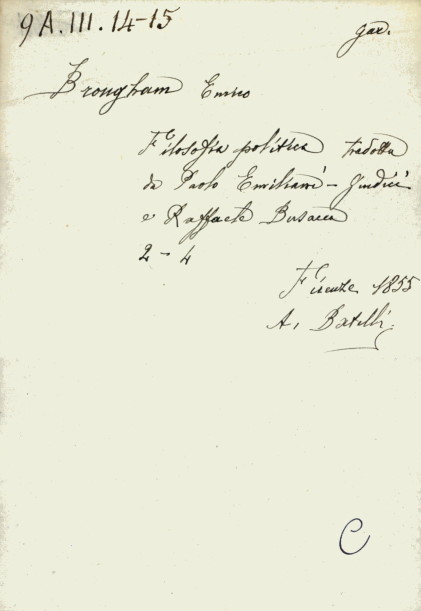 9A.III.14-15
gar.
Brougham Enrico
Filosofia politica tradotta
da Paolo Emiliani-Giudici
e Raffaele Busacca
2-4
Firenze 1855
A. Batelli.
C